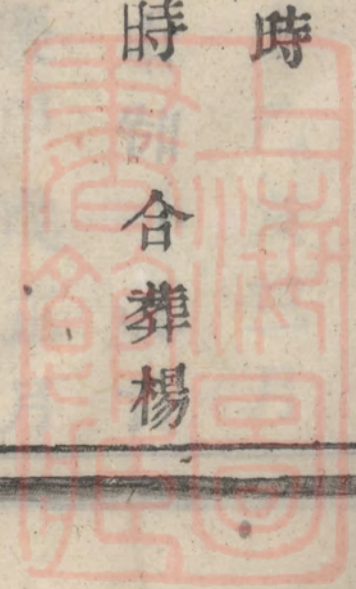 時
時 合葬楊
上海圖
書館藏